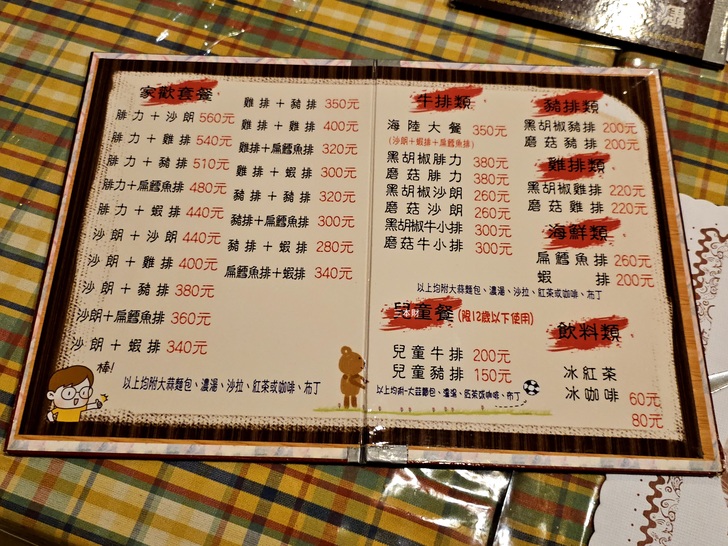 家歡套餐
腓力+沙朗 560元
腓力+雞排 540元
腓力+豬排 510元
腓力+扁鱈魚排 480元
腓力+蝦排 440元
沙朗+沙朗 440元
沙朗+雞排 400元
沙朗+豬排 380元
沙朗+扁鱈魚排 360元
沙朗+蝦排 340元
雞排+豬排 350元
雞排+雞排 400元
雞排+扁鱈魚排 320元
雞排+蝦排 300元
豬排+豬排 320元
豬排+扁鱈魚排 300元
豬排+蝦排 280元
扁鱈魚排+蝦排 340元
棒!
以上均附大蒜麵包、濃湯、沙拉、紅茶或咖啡、布丁
牛排類
海陸大餐 350元
(沙朗+蝦排+扁鱈魚排)
黑胡椒腓力 380元
磨菇腓力 380元
黑胡椒沙朗 260元
磨菇沙朗 260元
黑胡椒牛小排 300元
磨菇牛小排 300元
豬排類
黑胡椒豬排 200元
磨菇豬排 200元
雞排類
黑胡椒雞排 220元
磨菇雞排 220元
海鮮類
扁鱈魚排 260元
蝦排 200元
以上均附大蒜麵包、濃湯、沙拉、紅茶或咖啡、布丁
兒童餐(限12歲以下使用)
三本財
兒童牛排 200元
兒童豬排 150元
以上均附-大蒜麵包、濃湯、紅茶或咖啡、布丁
飲料類
冰紅茶
冰咖啡 60元
80元